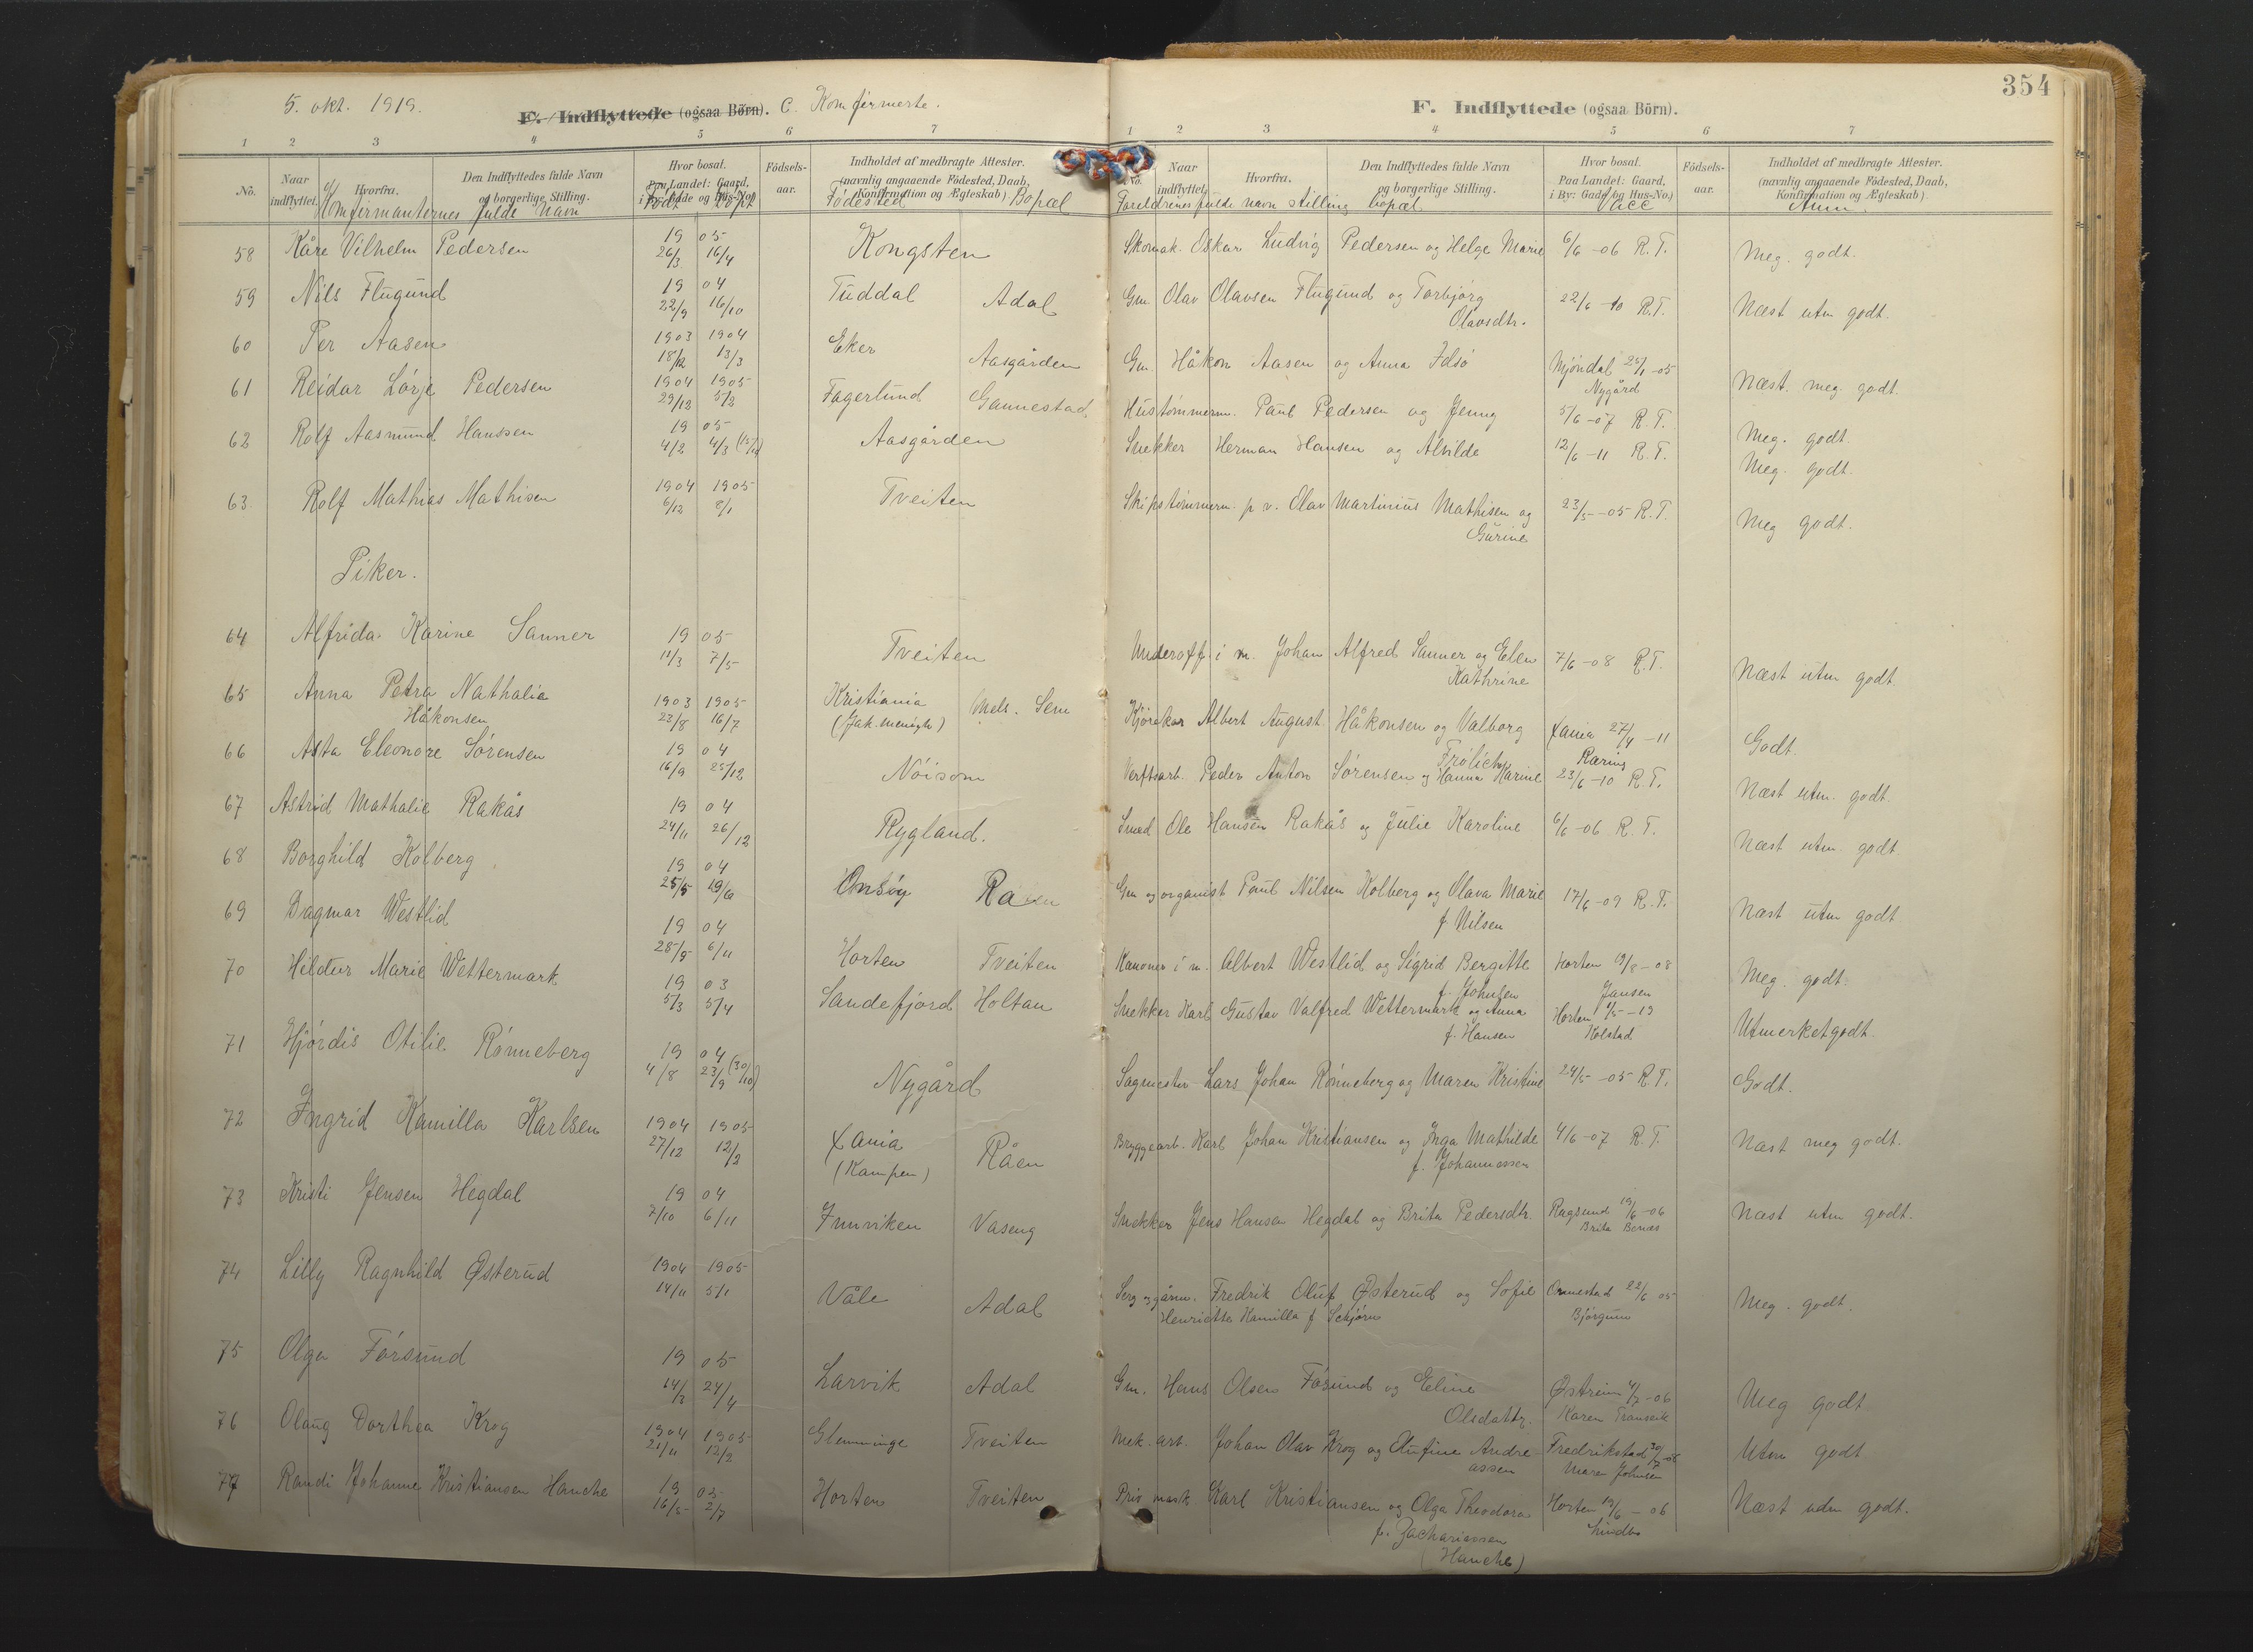 354
5. okt. 1919.
F. Indflyttede (ogsaa Börn). C. Konfirmerte.
1 2 3 4 5 6 7
No. Naar indflyttet. Hvorfra. Den Indflyttedes fulde Navn og borgerlige Stilling. Hvor bosat. Paa Landet: Gaard, i By: Gade og Hus-No.) Födsels-aar. Indholdet af medbragte Attester. (navnlig angaaende Födested, Daab, Konfirmation og Ægteskab)
Konfirmanternes fulde navn Födt Döpt Födested Bopæl
58 Kåre Vilhelm Pedersen 19 05 26/3 16/4 Kongsten
59 Nils Flugund 19 04 22/9 16/10 Tuddal Adal
60 Per Aasen 1903 1904 18/12 13/3 Eker Aasgården
61 Reidar Lörje Pedersen 1904 1905 29/12 5/2 Fagerlund Gannestad
62 Rolf Aasmund Hanssen 19 05 4/2 4/3 Aasgården
63 Rolf Mathias Mathisen 1904 1905 6/12 8/1 Tveiten
Piker.
64 Alfrida Karine Sanner 19 05 11/3 7/5 Tveiten
65 Anna Petra Nathalie Håkonsen 1903 1905 23/8 16/7 Kristiania (Jak. menigh) Mels. Sem
66 Asta Eleonore Sörensen 19 04 16/9 25/12 Nöisom
67 Astrid Mathalie Rakås 19 04 24/11 26/12 Rygland.
68 Borghild Kolberg 19 04 25/5 19/6 Onsöy Raen
69 Dagmar Westlid 19 04 28/9 6/11 Horten Tveiten
70 Hildur Marie Wettermark 19 03 5/3 5/4 Sandefjord Holtan
71 Hjördis Otilie Rönneberg 19 04 4/8 23/9 (30/10) Nygård
72 Ingrid Kamilla Karlsen 1904 1905 27/12 12/2 Xania (Kampen) Råen
73 Kristi Jensen Hegdal 19 04 7/10 6/11 Innviken Vaseng
74 Lilly Ragnhild Østerud 1904 1905 14/11 5/1 Våle Adal
75 Olga Försund 19 05 14/3 24/4 Larvik Adal
76 Olaug Dorthea Krog 1904 1905 21/11 12/2 Glemminge Tveiten
77 Randi Johanne Kristiansen Hanche 19 05 16/5 2/7 Horten Tveiten
F. Indflyttede (ogsaa Börn).
1 2 3 4 5 6 7
No. Naar indflyttet. Hvorfra. Den Indflyttedes fulde Navn og borgerlige Stilling. Hvor bosat. Paa Landet: Gaard, i By: Gade og Hus-No.) Födsels-aar. Indholdet af medbragte Attester. (navnlig angaaende Födested, Daab, Konfirmation og Ægteskab)
Foreldrenes fulde navn stilling bopæl Vacc Anm.
Skomak. Oskar Ludvig Pedersen og Helge Marie 6/6 -06 R.T. Meg. godt.
Gm. Olav Olavsen Flugund og Torbjörg Olavsdtr. 22/6 -10 R.T. Næst utm godt.
Gm. Håkon Aasen og Anna Idsö Mjöndal 25/1 -05 Nygård Næst. meg. godt.
Hustömmerm. Paul Pedersen og Jenny 5/6 -07 R.T. Meg. godt.
Snekker Herman Hansen og Alvilde 12/6 -11 R.T. Meg. godt.
Skipstömmerm. p v. Olav Martinius Mathisen og Gurine 23/5 -05 R.T. Meg godt.
Underoff. i m. Johan Alfred Sanner og Elen Kathrine 7/6 -08 R.T. Næst utm godt.
Kjörekar Albert August Håkonsen og Valborg Frölich Xania 27/4 -11 Godt.
Verftsarb. Peder Anton Sörensen og Hanna Karine 23/6 -10 R.T. Næst utm. godt.
Smed Ole Hansen Rakås og Julie Karoline 6/6 -06 R.T. Næst utm. godt.
Gm og organist Paul Nilsen Kolberg og Olava Marie f Nilsen 17/6 -09 R.T. Næst utm godt
Kanoner i m. Albert Westlid og Sigrid Bergitte f. Johnsen Horten 19/8 -08 Jansen Meg. godt.
Snekker Karl Gustav Valfred Wettermark og Anna f. Hansen Horten 1/5 -19 Kolstad Utmerketgodt
Sagmester Lars Johan Rönneberg og Maren Kristine 24/5 -05 R.T. Godt.
Bryggearb. Karl Johan Kristiansen og Inga Mathilde f. Johannessen 4/6 -07 R.T. Næst meg godt.
Snekker Jens Hansen Hegdal og Brita Pedersdtr. Ragsund 19/6 -06 Brita Næst utm godt.
Serg og gårm. Fredrik Oluf Østerud og Sofie Henriette Kamilla f Schjörn 22/6 05 Björgum Meg. godt.
Gm. Hans Olsen Försund og Eline Olsdattr. Østreim 4/7 -06 Karen Meg godt
Mek. arb. Johan Olav Krog og Andreassen Fredrikstad Maren Johnsen Utm godt
Priv. mask Karl Kristiansen og Olga Theodora f. Zachariessen (Hanche) Horten 19/6 -06 Lindbo Næst udm godt.